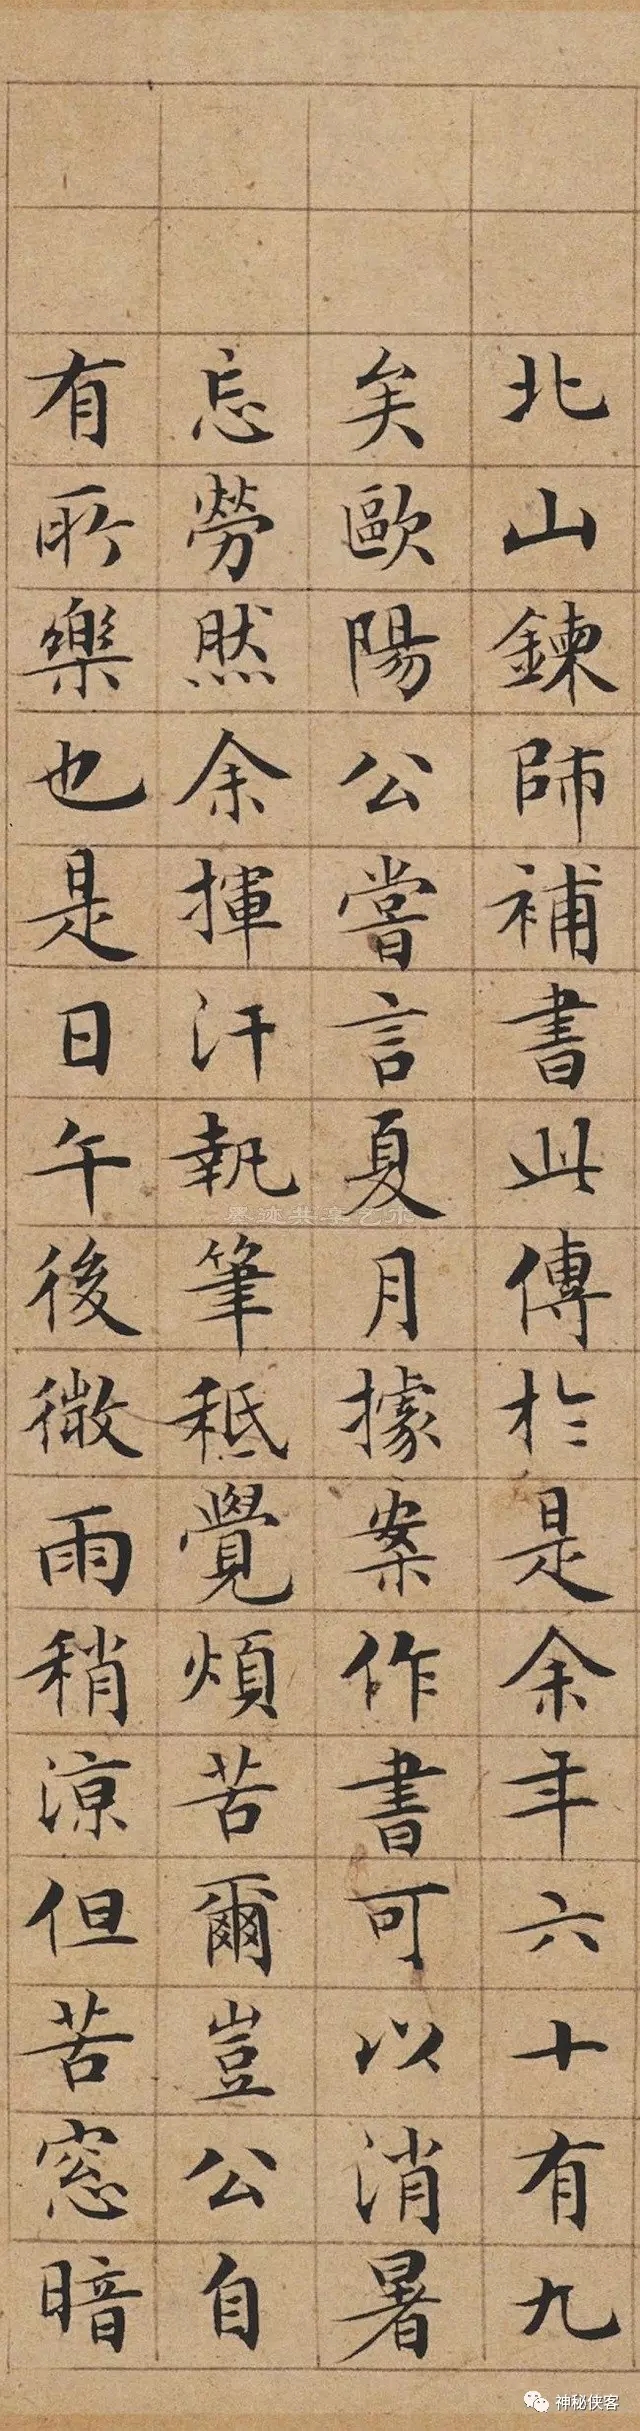 北山鍊師補書此傳於是余年六十有九
矣歐陽公嘗言夏月據案作書可以消暑
忘勞然余揮汗執筆秪覺煩苦爾豈公自
有所樂也是日午後微雨稍涼但苦窓暗
墨迹共享艺术
神秘侠客